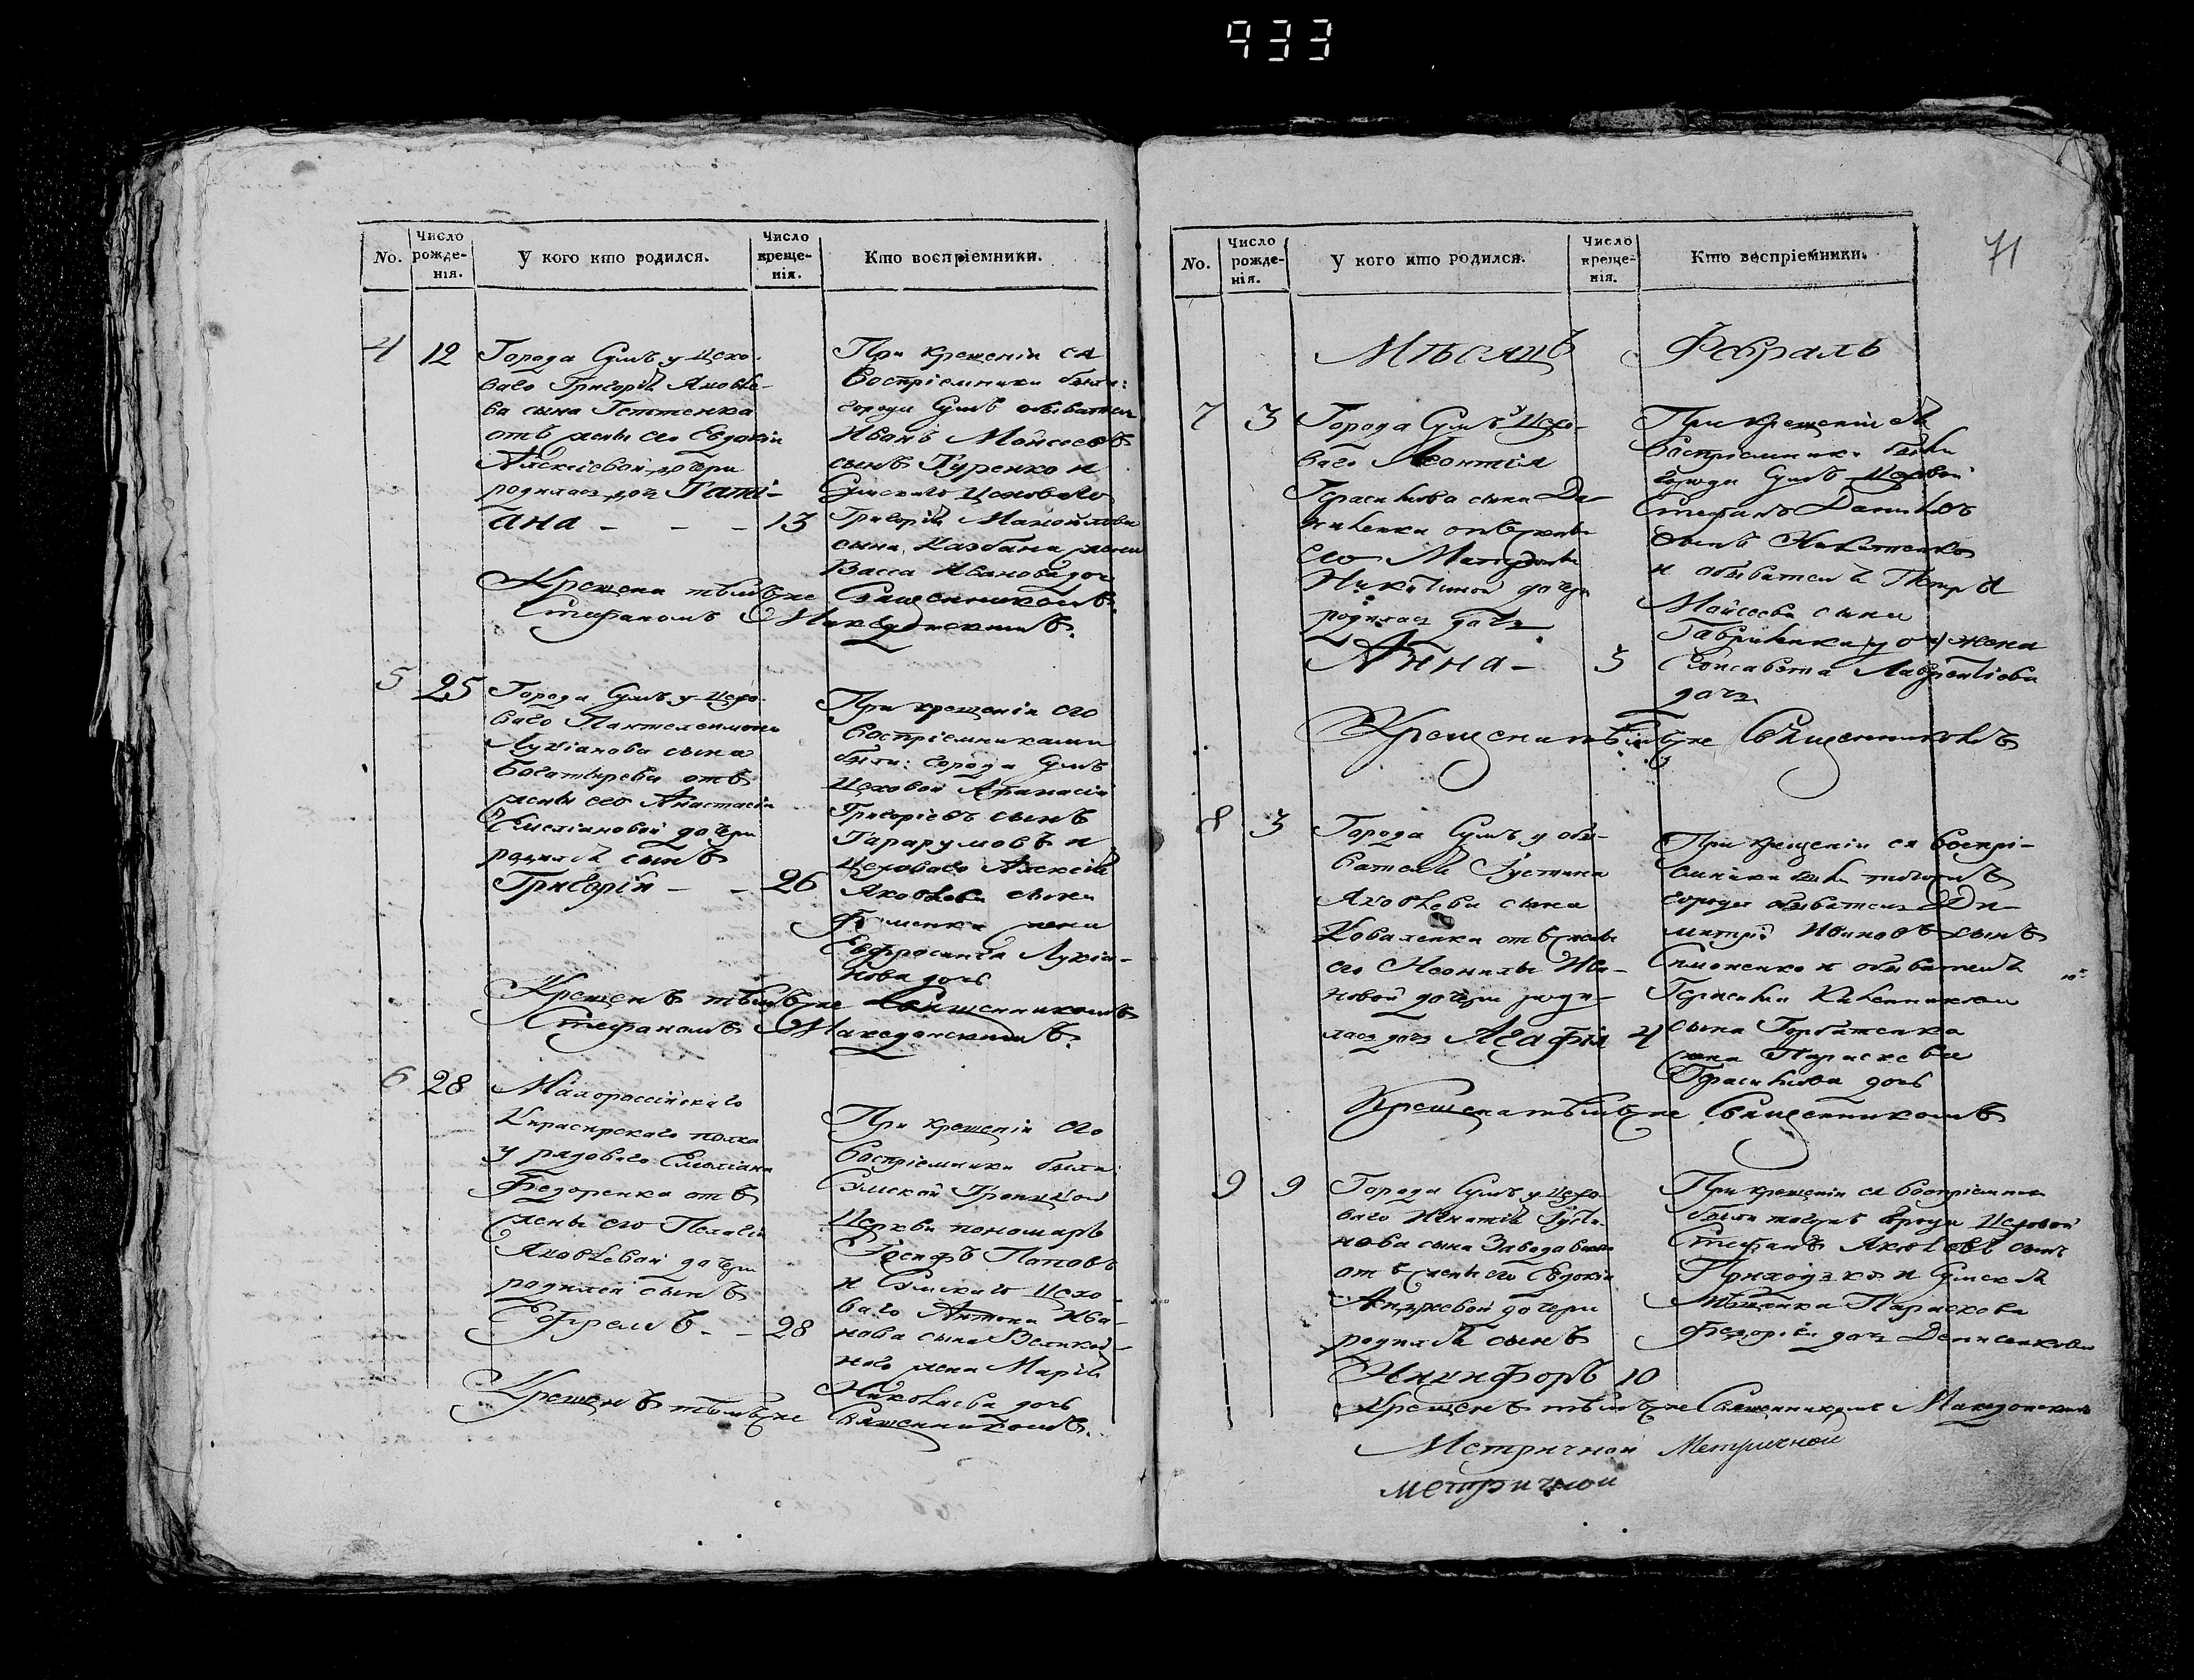 933
No.
Число рожде-нія.
У кого кто родился.
Число креще-нія.
Кто воспріемники.
4 12
Города Сумъ у цехо-
ваго Григорія Яковле-
ва сына
отъ жены его Евдокіи
Алексіевой дочери
родилась дочь Таті-
ана - - - 13
При крещеніи ея
воспріемники были:
города Сумъ обыватель
Иванъ Мойсеевъ
сынъ Гуренко и
Сумскаго цеховаго
Григорія Манойлова
сына жена
Васса Иванова доч
Крещена тѣмъ же Священникомъ
Стефаномъ Македонскимъ.
5 25
Города Сумъ у цехо-
ваго Пантелеимона
Лукіанова сына
Богатырева отъ
жены его Анастасіи
Емеліановой дочери
родился сынъ
Григорій - - 26
При крещеніи его
воспріемниками
были: города Сумъ
цеховой Афанасій
Григоріевъ сынъ
и
цеховаго Алексія
Яковлева сына
жена
Евфросинія Лукіа-
нова дочь
Крещенъ тѣмъ же Священникомъ
Стефаномъ Македонскимъ.
6 28
Малороссійскаго
Кирасирскаго полка
у рядоваго Емеліана
Федоренка отъ
жены его Пелагіи
Яковлевой дочери
родился сынъ
Ефремъ - - 28
При крещеніи его
воспріемники были:
Сумской Троицкой
Церкви пономарь
Іосифъ Поповъ
и Сумскаго цехо-
ваго Антона Ива-
нова сына
жена Марія
Николаева дочь
Крещенъ тѣмъ же Священникомъ.
71
No.
Число рожде-нія.
У кого кто родился.
Число креще-нія.
Кто воспріемники.
Мѣсяцъ Февраль
7 3
Города Сумъ у цехо-
ваго Леонтія
Герасимова сына Да-
ниленка отъ жены
его Матроны
Никитиной дочери
родилась дочь
Анна - 3
При крещеніи ея
воспріемники были
города Сумъ цеховой
Стефанъ Даниловъ
сынъ
и обывателя Петра
Мойсеева сына
Гавриленка жена
Елисавета Лаврентіева
дочь
Крещена тѣмъ же Священникомъ
8 3
Города Сумъ у обы-
вателя Іустина
Яковлева сына
Коваленка отъ жены
его Неонилы Ива-
новой дочери роди-
лась дочь Агафія 4
При крещеніи ея воспрі-
емники были тогожъ
города обыватель Ди-
митрій Ивановъ сынъ
Симоненко и обывателя
Герасима
сына Горбатенка
жена Параскева
Герасимова дочь
Крещена тѣмъ же Священникомъ
9 9
Города Сумъ у цехо-
ваго Игнатія
сына
отъ жены его Евдокіи
Андреевой дочери
родился сынъ
Никифоръ 10
При крещеніи его воспріемники
были тогожъ города цеховой
Стефанъ Яковлевъ сынъ
Приходько и Сумская
мѣщанка Параскева
дочь Денисенкова
Крещенъ тѣмъ же Священникомъ Македонскимъ
Метричной Метричной
метричной